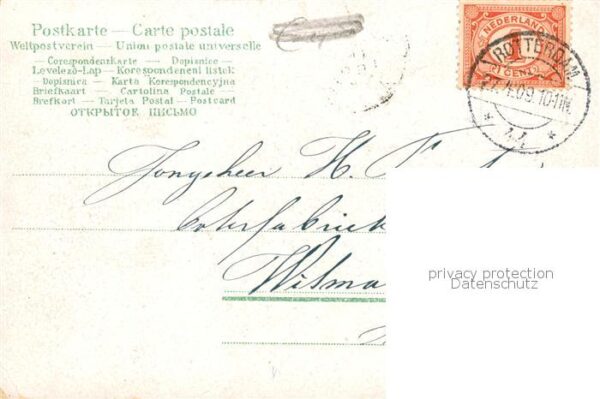 Postkarte — Carte postale
Weltpostverein — Union postale universelle
— Correspondenzkarte — Dopisnice —
Levelező-Lap — Korespondeneni listek
— Dopisnica — Karta Korespondencyjna
Briefkaart — Cartolina Postale —
Brefkort — Tarjeta Postal — Postcard
ОТКРЫТОЕ ПИСЬМО
NEDERLAND
1
CENT
ROTTERDAM
4.09.10-11N.
Jongeheer H.
Wilma
privacy protection
Datenschutz